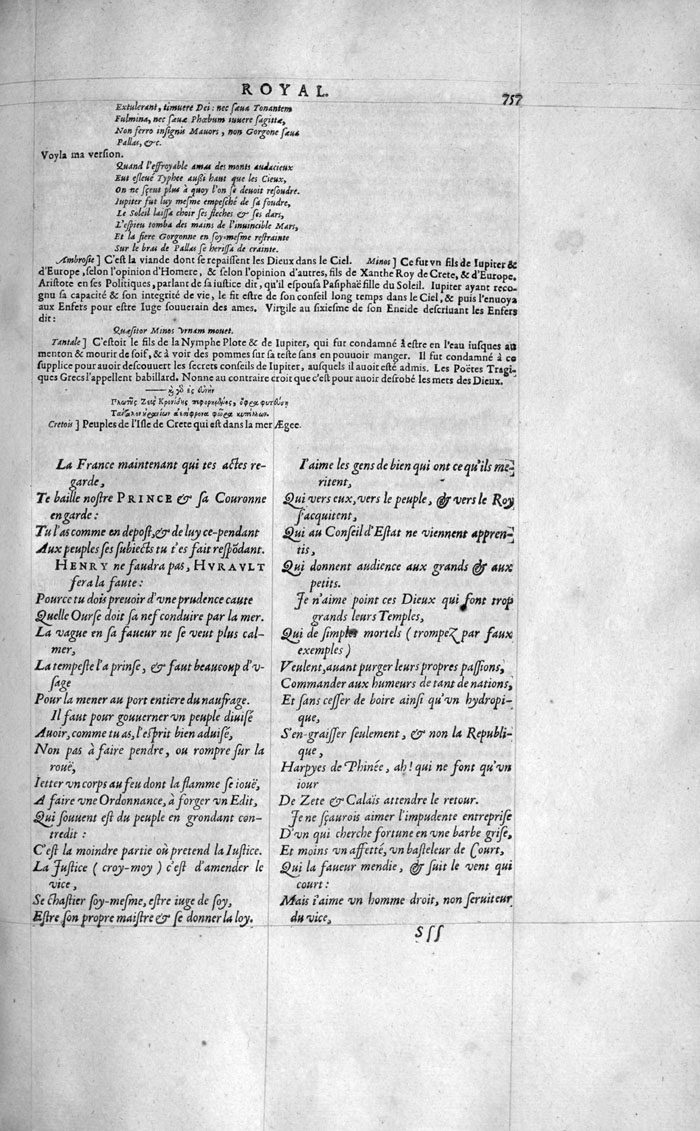 ROYAL. 757
Extulerant, timuere Dei: nec ſæua Tonantem
Fulmina, nec ſæuæ Phœbum iuuere ſagittæ,
Non ferro inſignis Mauors, non Gorgone ſæua
Pallas, &c.
Voyla ma verſion.
Quand l'effroyable amas des monts audacieux
Eut eſleué Typhee außi haut que les Cieux,
On ne ſçeut plus à quoy l'on ſe deuoit reſoudre.
Iupiter fut luy meſme empeſché de ſa foudre,
Le Soleil laiſſa choir ſes fleches & ſes dars,
L'eſpieu tomba des mains de l'inuincible Mars,
Et la fiere Gorgonne en ſoy-meſme reſtrainte
Sur le bras de Pallas ſe heriſſa de crainte.
Ambroſie] C'eſt la viande dont ſe repaiſſent les Dieux dans le Ciel. Minos] Ce fut vn fils de Iupiter &
d'Europe, ſelon l'opinion d'Homere, & ſelon l'opinion d'autres, fils de Xanthe Roy de Crete, & d'Europe.
Ariſtote en ſes Politiques, parlant de ſa iuſtice dit, qu'il eſpouſa Paſiphaë fille du Soleil. Iupiter ayant reco-
gnu ſa capacité & ſon integrité de vie, le fit eſtre de ſon conſeil long temps dans le Ciel, & puis l'enuoya
aux Enfers pour eſtre Iuge ſouuerain des ames. Virgile au ſixieſme de ſon Eneide deſcriuant les Enfers
dit:
Quæſitor Minos vrnam mouet.
Tantale] C'eſtoit le fils de la Nymphe Plote & de Iupiter, qui fut condamné à eſtre en l'eau iuſques au
menton & mourir de ſoif, & à voir des pommes ſur ſa teſte ſans en pouuoir manger. Il fut condamné à ce
ſupplice pour auoir deſcouuert les ſecrets conſeils de Iupiter, auſquels il auoit eſté admis. Les Poëtes Tragi-
ques Grecs l'appellent babillard. Nonne au contraire croit que c'eſt pour auoir deſrobé les mets des Dieux.
Cretois] Peuples de l'Iſle de Crete qui eſt dans la mer Ægee.
La France maintenant qui tes actes re-
garde,
Te baille noſtre PRINCE & ſa Couronne
en garde:
Tu l'as comme en depoſt, & de luy ce-pendant
Aux peuples ſes ſubiects tu t'es fait reſpõdant.
HENRY ne faudra pas, HVRAVLT
fera la faute:
Pource tu dois preuoir d'vne prudence caute
Quelle Ourſe doit ſa nef conduire par la mer.
La vague en ſa faueur ne ſe veut plus cal-
mer,
La tempeſte l'a prinſe, & faut beaucoup d'v-
ſage
Pour la mener au port entiere du naufrage.
Il faut pour gouuerner vn peuple diuiſé
Auoir, comme tu as, l'eſprit bien aduiſé,
Non pas à faire pendre, ou rompre ſur la
rouë,
Ietter vn corps au feu dont la flamme ſe iouë,
A faire vne Ordonnance, à forger vn Edit,
Qui ſouuent eſt du peuple en grondant con-
tredit:
C'eſt la moindre partie où pretend la Iuſtice.
La Juſtice (croy-moy) c'eſt d'amender le
vice,
Se chaſtier ſoy-meſme, eſtre iuge de ſoy,
Eſtre ſon propre maiſtre & ſe donner la loy.
I'aime les gens de bien qui ont ce qu'ils me-
ritent,
Qui vers eux, vers le peuple, & vers le Roy
ſ'acquitent,
Qui au Conſeil d'Eſtat ne viennent appren-
tis,
Qui donnent audience aux grands & aux
petits.
Je n'aime point ces Dieux qui font trop
grands leurs Temples,
Qui de ſimples mortels (trompez par faux
exemples)
Veulent, auant purger leurs propres paſſions,
Commander aux humeurs de tant de nations,
Et ſans ceſſer de boire ainſi qu'vn hydropi-
que,
S'en-graiſſer ſeulement, & non la Republi-
que,
Harpyes de Phinée, ah! qui ne font qu'vn
iour
De Zete & Calaïs attendre le retour.
Je ne ſçaurois aimer l'impudente entrepriſe
D'vn qui cherche fortune en vne barbe griſe,
Et moins vn affetté, vn baſteleur de Court,
Qui la faueur mendie, & ſuit le vent qui
court:
Mais i'aime vn homme droit, non ſeruiteur
du vice,
Sſſ